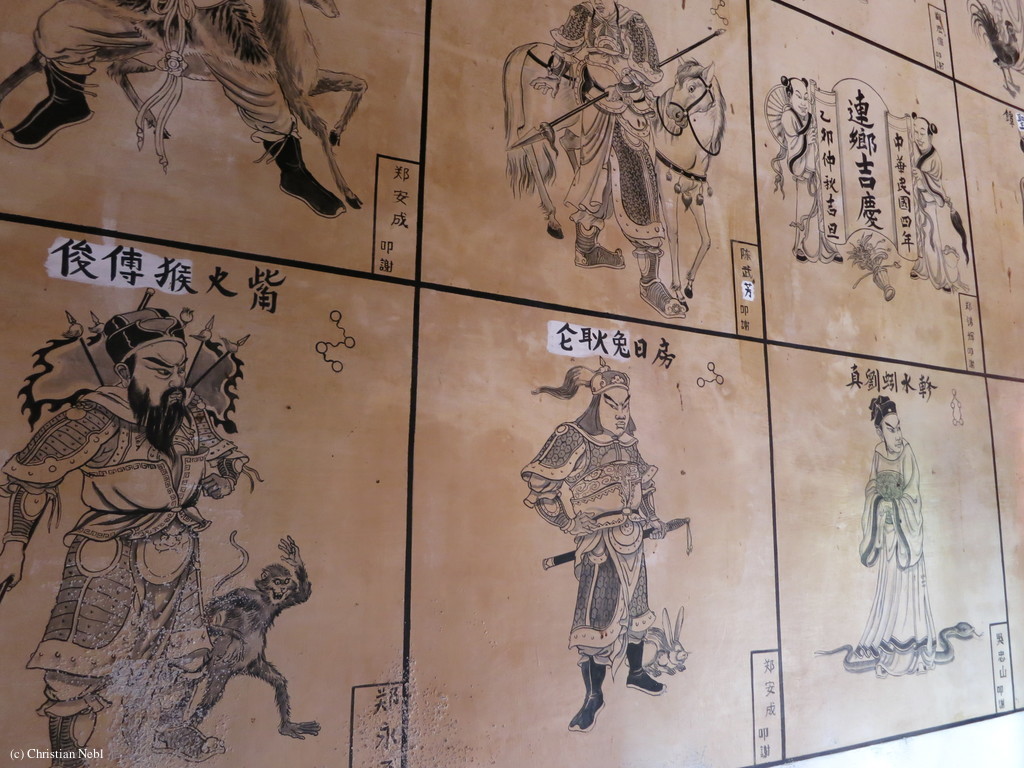 郑安成 叩謝
陈武芳 叩謝
中華民國四年
連鄉吉慶
乙卯仲秋吉旦
觜火猴傅俊
郑永
房日兔耿仑
郑安成 叩謝
軫水蚓劉真
(c) Christian Nebl